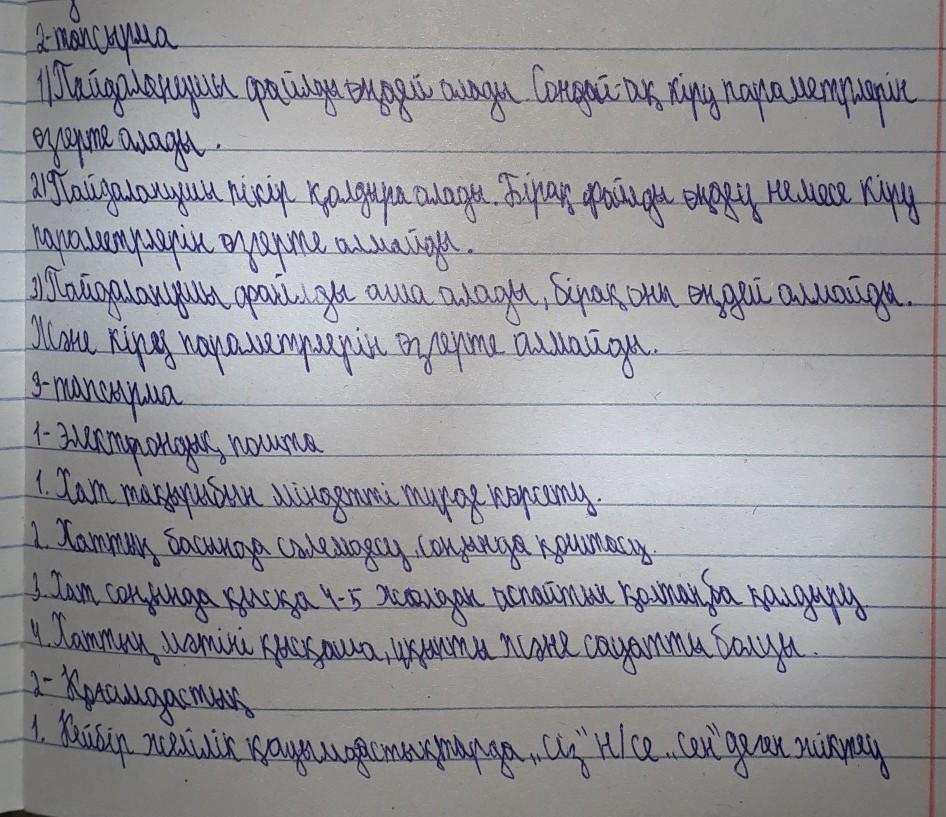 2-тапсырма
1) Пайдаланушы файлды өңдей алады Сондай-ақ кіру параметрлерін
өзгерте алады.
2) Пайдаланушы пікір қалдыра алады. Бірақ файлды өңдеу немесе кіру
параметрлерін өзгерте алмайды.
3) Пайдаланушы файлды аша алады, бірақ оны өңдей алмайды.
Және кіреу параметрлерін өзгерте алмайды.
3-тапсырма
1- Электрондық пошта
1. Хат тақырыбын міндетті түрде көрсету.
2. Хаттың басында сәлемдесу, соңында қоштасу.
3. Хат соңында қысқа 4-5 жолдан аспайтын қолтаңба қалдыру
4. Хаттың мәтіні қысқаша, ұқыпты және сауатты болуы.
2- Қоғамдастық
1. Кейбір желілік қауымдастықтарда "сіз" н/се "сен" деген жіктеу